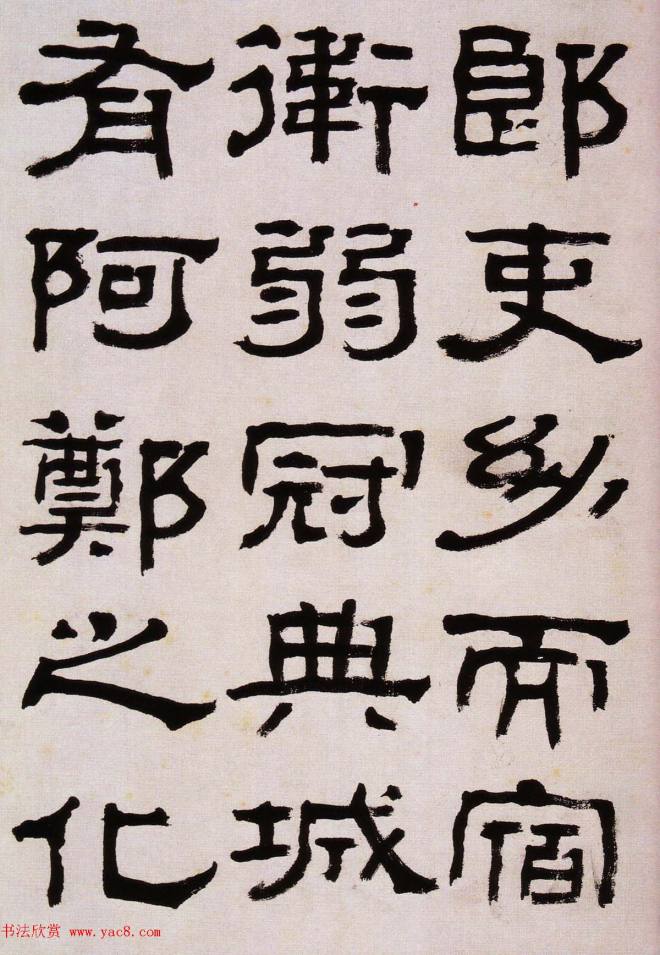 郎吏乡而宿
衛弱冠典城
有阿鄭之化
书法欣赏 www.yac8.com